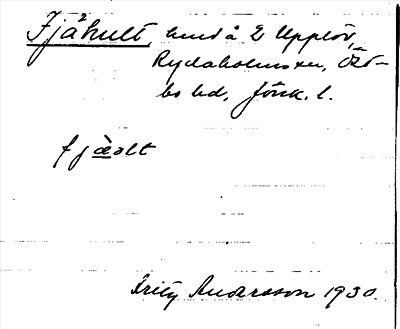 Fjähult, hmd å 2 Upplöv,
Rydaholms sn, Öst-
bo hd, Jönk. l.
fjàolt
Fritz Andersson 1930.